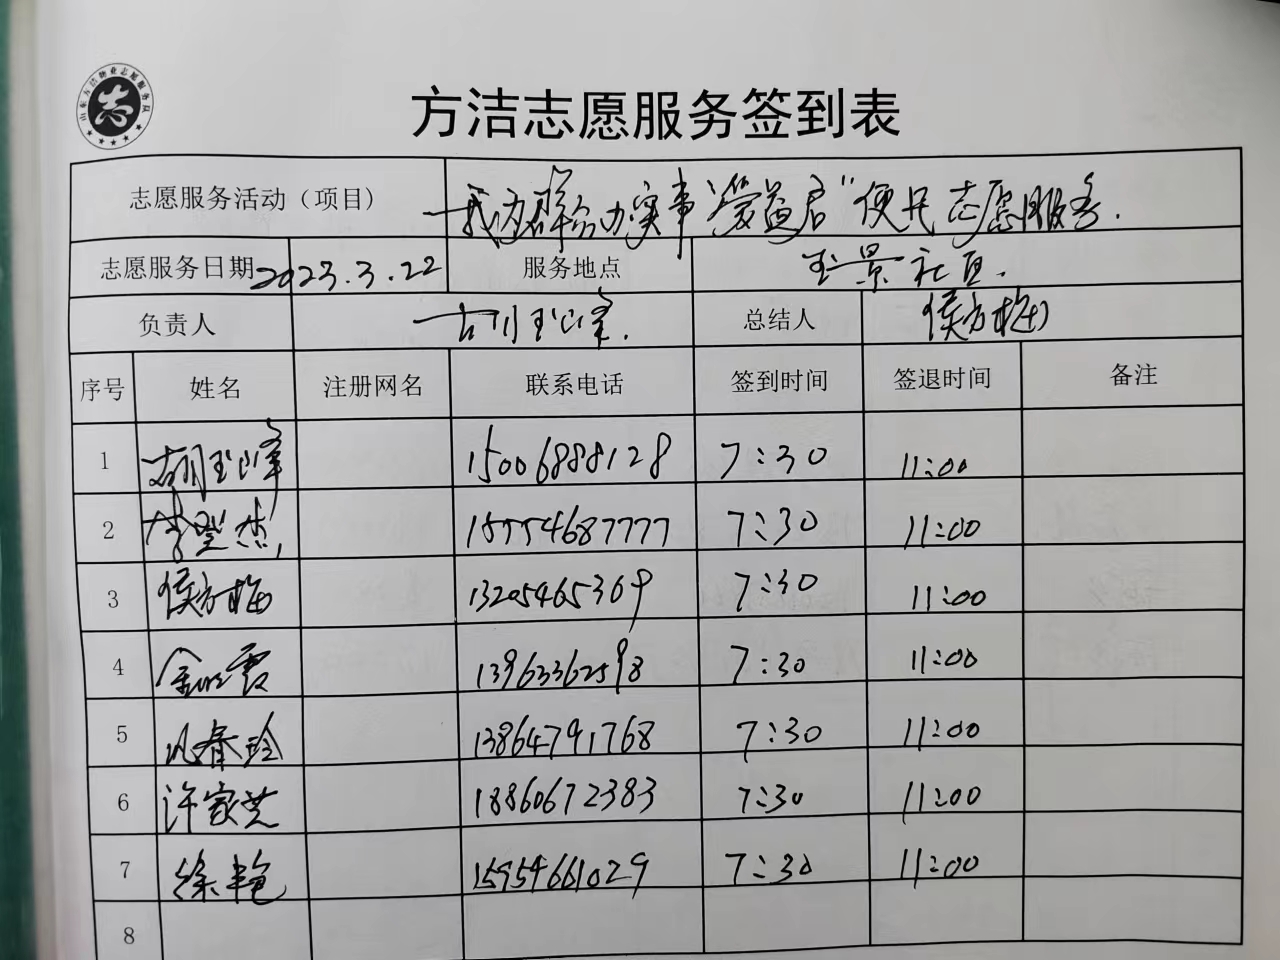 山东方洁物业志愿服务队
志
方洁志愿服务签到表
志愿服务活动（项目） 我为群众办实事"爱益启"便民志愿服务.
志愿服务日期 2023.3.22 服务地点 玉景社区.
负责人 胡玉峰. 总结人 侯方梅
序号 姓名 注册网名 联系电话 签到时间 签退时间 备注
1 胡玉峰 15006888128 7:30 11:00
2 15554687777 7:30 11:00
3 侯方梅 13205465369 7:30 11:00
4 13963362598 7:30 11:00
5 13864791768 7:30 11:00
6 许家芝 18860672383 7:30 11:00
7 徐艳 15954661029 7:30 11:00
8